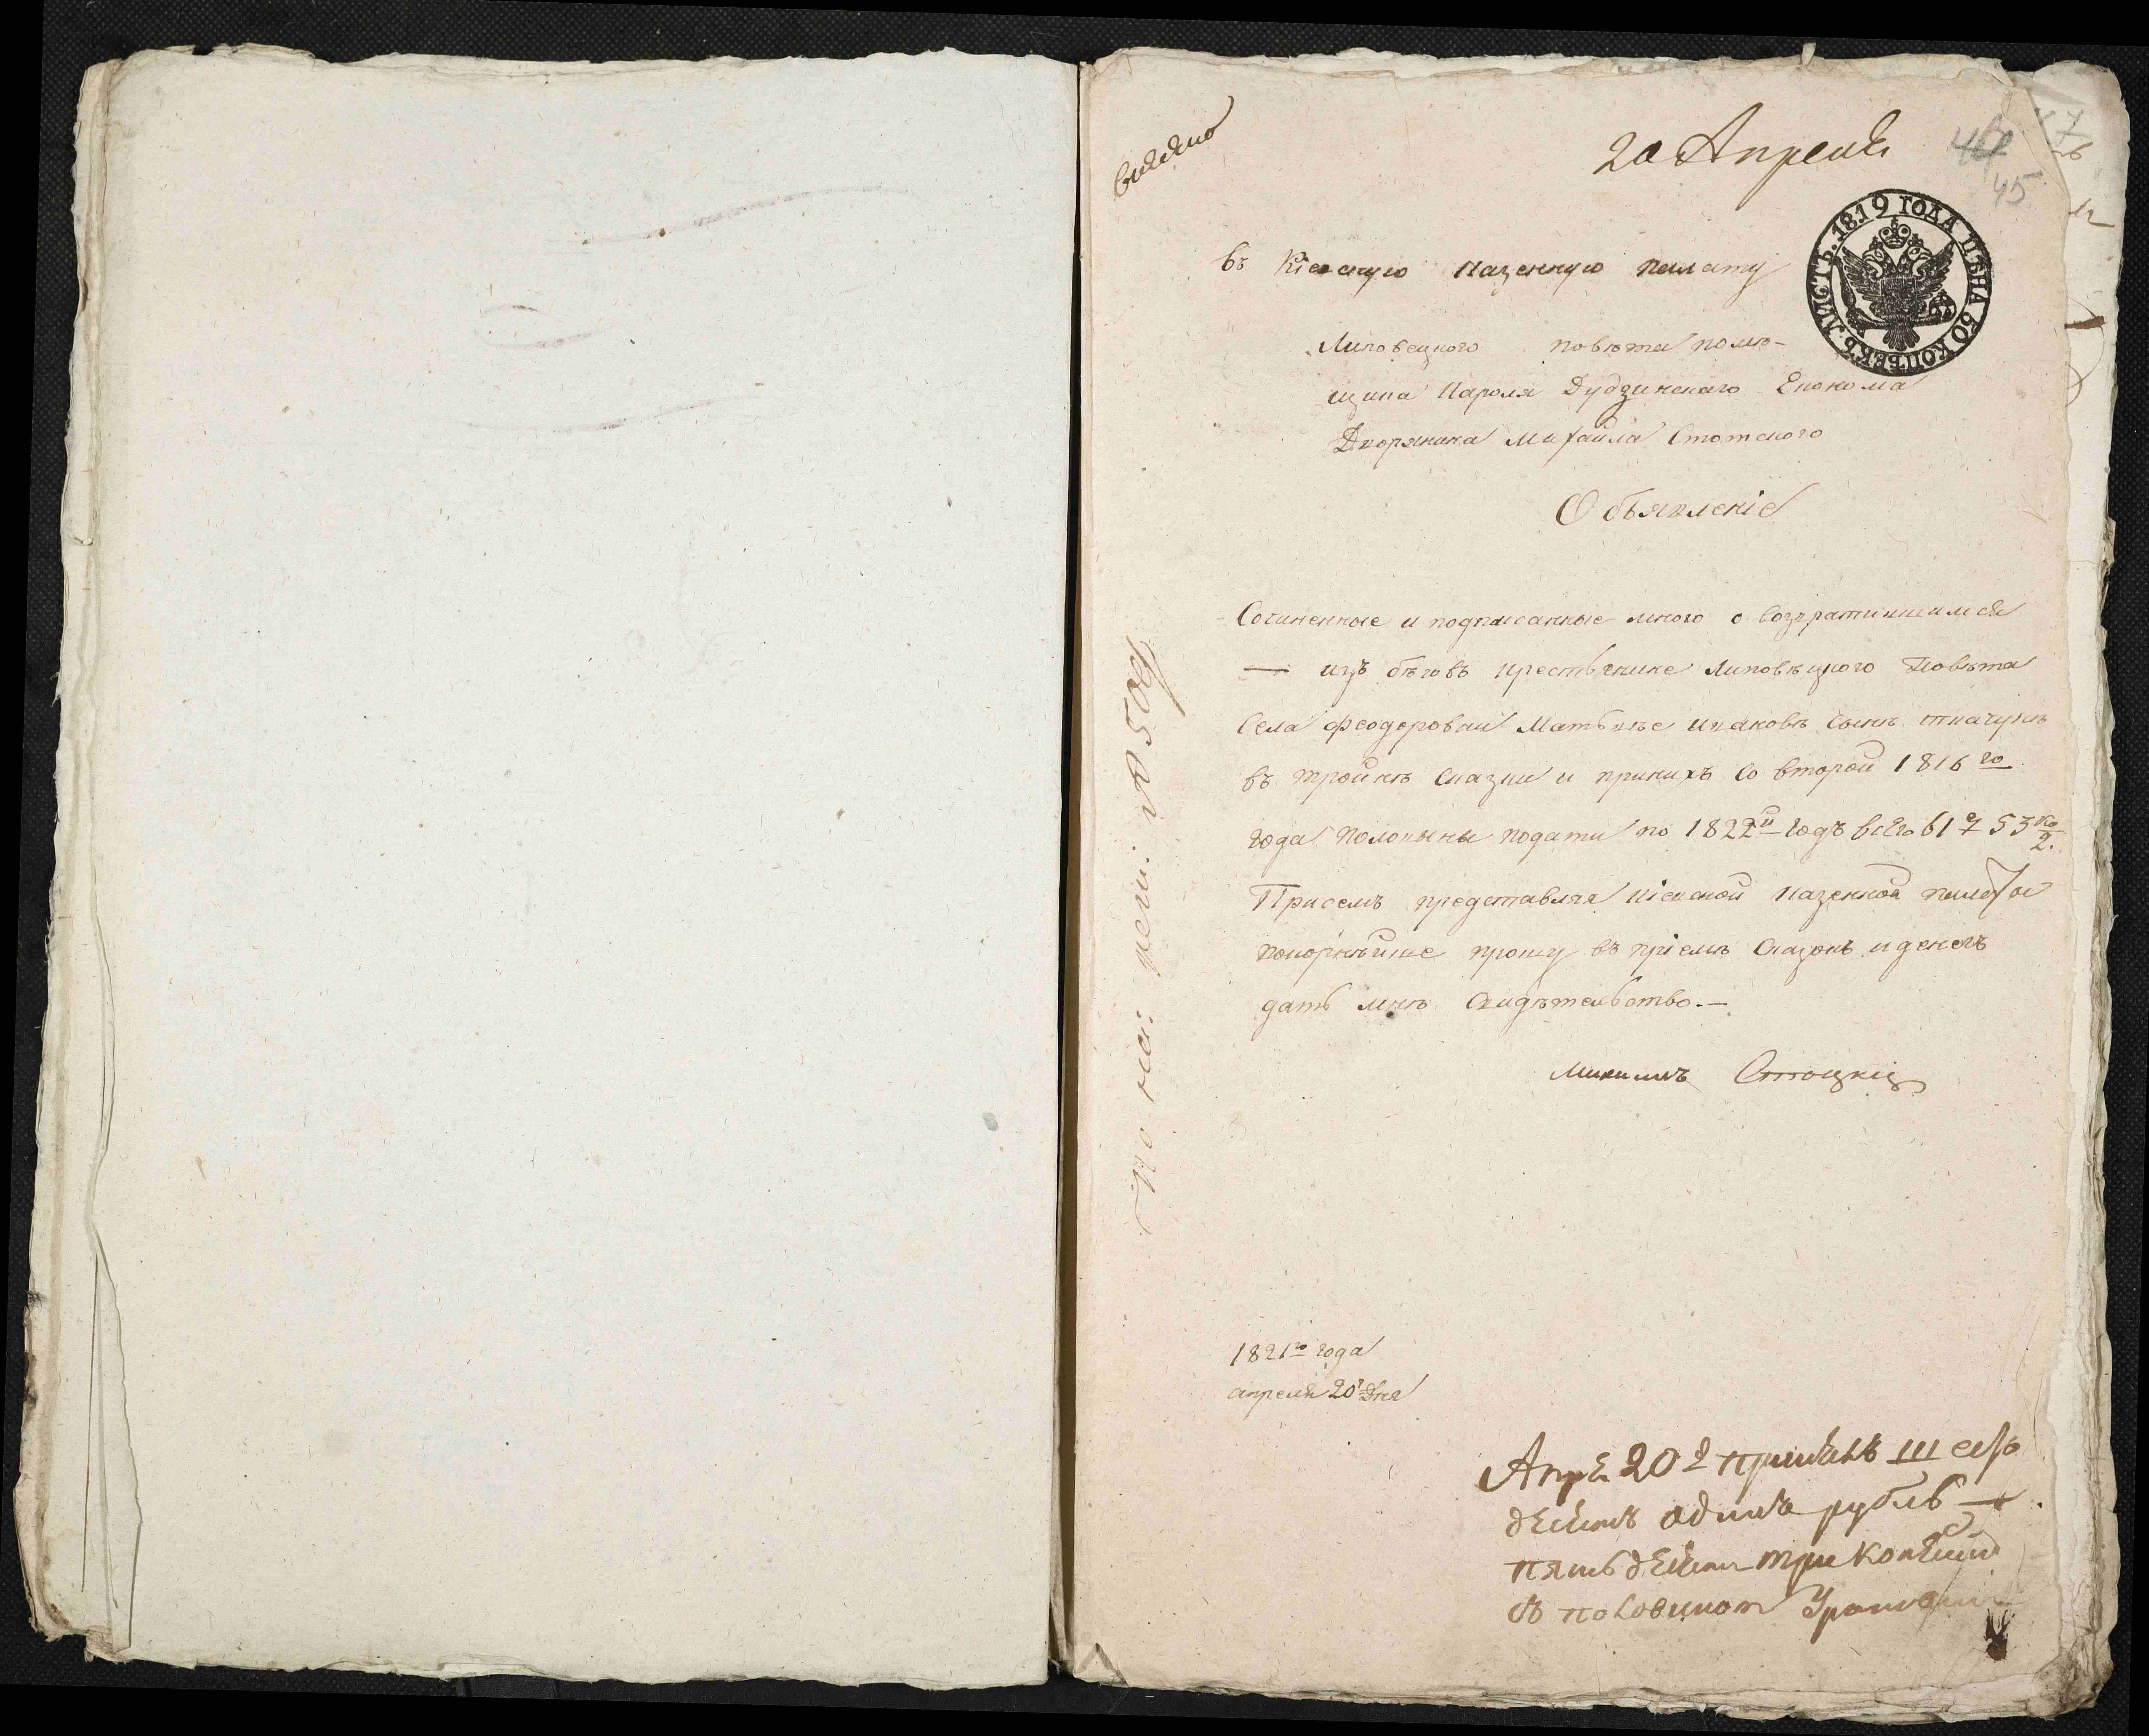 20 Апреля
45
ЛИСТЪ. 1819 ГОДА ЦѢНА 50 КОПѢЕКЪ.
въ Кіевскую Казенную палату
Липовецкого повѣта помѣ-
щика Кароля Дубзинскаго Економа
Дворянина Михайла Стотского
Объявленіе
Сочиненные и подписанные мною о возвратившимся
— изъ бѣговъ крестьянине Липовѣцкого Повѣта
Села Феодоровки Матвѣе Иваковѣ сынѣ ткачукѣ
въ тройнѣ Сказки и приихъ Со второй 1816го
года половины подати по 1822й годъ всего 61 53 ко/2.
Присемъ представляя Кіевской Казенной палатѣ
покорнѣйше прошу въ пріемѣ Сказокъ и денегъ
дать мнѣ Свидѣтельство.—
Михаилъ Стоцкій
1821го года
апреля 20 Дня
20 шесть
десятъ одинъ рубль —
пятьдесят три копейки
съ половиною